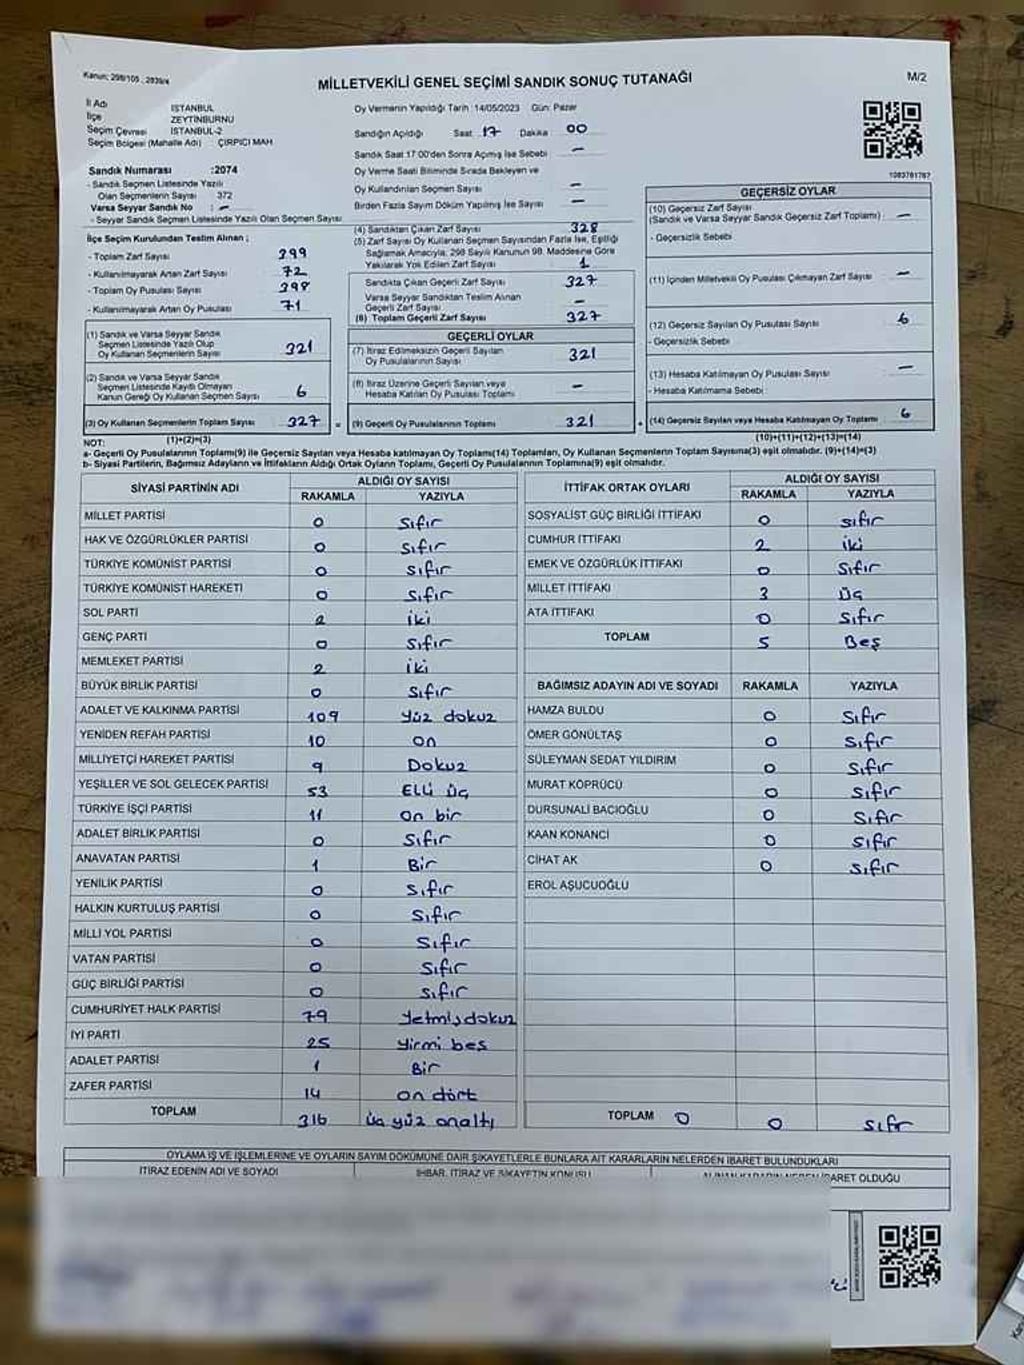 Kanun: 298/105 , 2839/4
MİLLETVEKİLİ GENEL SEÇİMİ SANDIK SONUÇ TUTANAĞI
M/2
İl Adı İSTANBUL
İlçe ZEYTİNBURNU
Seçim Çevresi İSTANBUL-2
Seçim Bölgesi (Mahalle Adı) ÇIRPICI MAH
Sandık Numarası :2074
- Sandık Seçmen Listesinde Yazılı
Olan Seçmenlerin Sayısı 372
Varsa Seyyar Sandık No : -
- Seyyar Sandık Seçmen Listesinde Yazılı Olan Seçmen Sayısı
İlçe Seçim Kurulundan Teslim Alınan ;
- Toplam Zarf Sayısı 399
- Kullanılmayarak Artan Zarf Sayısı 72
- Toplam Oy Pusulası Sayısı 398
- Kullanılmayarak Artan Oy Pusulası 71
(1) Sandık ve Varsa Seyyar Sandık
Seçmen Listesinde Yazılı Olup
Oy Kullanan Seçmenlerin Sayısı 321
(2) Sandık ve Varsa Seyyar Sandık
Seçmen Listesinde Kayıtlı Olmayan
Kanun Gereği Oy Kullanan Seçmen Sayısı 6
(3) Oy Kullanan Seçmenlerin Toplam Sayısı 327 =
(1)+(2)=(3)
Oy Vermenin Yapıldığı Tarih :14/05/2023 Gün: Pazar
Sandığın Açıldığı Saat 17 Dakika 00
Sandık Saat 17:00'den Sonra Açılmış İse Sebebi -
Oy Verme Saati Bitiminde Sırada Bekleyen ve
Oy Kullandırılan Seçmen Sayısı -
Birden Fazla Sayım Döküm Yapılmış İse Sayısı -
(4) Sandıktan Çıkan Zarf Sayısı 328
(5) Zarf Sayısı Oy Kullanan Seçmen Sayısından Fazla İse, Eşitliği
Sağlamak Amacıyla, 298 Sayılı Kanunun 98. Maddesine Göre
Yakılarak Yok Edilen Zarf Sayısı 1
Sandıkta Çıkan Geçerli Zarf Sayısı 327
Varsa Seyyar Sandıktan Teslim Alınan
Geçerli Zarf Sayısı -
(6) Toplam Geçerli Zarf Sayısı 327
GEÇERLİ OYLAR
(7) İtiraz Edilmeksizin Geçerli Sayılan
Oy Pusulalarının Sayısı 321
(8) İtiraz Üzerine Geçerli Sayılan veya
Hesaba Katılan Oy Pusulası Toplamı -
(9) Geçerli Oy Pusulalarının Toplamı 321 +
1083781787
GEÇERSİZ OYLAR
(10) Geçersiz Zarf Sayısı
(Sandık ve Varsa Seyyar Sandık Geçersiz Zarf Toplamı) : -
- Geçersizlik Sebebi
(11) İçinden Milletvekili Oy Pusulası Çıkmayan Zarf Sayısı -
(12) Geçersiz Sayılan Oy Pusulası Sayısı 6
- Geçersizlik Sebebi
(13) Hesaba Katılmayan Oy Pusulası Sayısı -
- Hesaba Katılmama Sebebi :
(14) Geçersiz Sayılan veya Hesaba Katılmayan Oy Toplamı 6
(10)+(11)+(12)+(13)=(14)
NOT:
a- Geçerli Oy Pusulalarının Toplamı(9) ile Geçersiz Sayılan veya Hesaba katılmayan Oy Toplamı(14) Toplamları, Oy Kullanan Seçmenlerin Toplam Sayısına(3) eşit olmalıdır. (9)+(14)=(3)
b- Siyasi Partilerin, Bağımsız Adayların ve İttifakların Aldığı Ortak Oyların Toplamı, Geçerli Oy Pusulalarının Toplamına(9) eşit olmalıdır.
SİYASİ PARTİNİN ADI ALDIĞI OY SAYISI
RAKAMLA YAZIYLA
MİLLET PARTİSİ 0 Sıfır
HAK VE ÖZGÜRLÜKLER PARTİSİ 0 Sıfır
TÜRKİYE KOMÜNİST PARTİSİ 0 Sıfır
TÜRKİYE KOMÜNİST HAREKETİ 0 Sıfır
SOL PARTİ 2 iki
GENÇ PARTİ 0 Sıfır
MEMLEKET PARTİSİ 2 iki
BÜYÜK BİRLİK PARTİSİ 0 Sıfır
ADALET VE KALKINMA PARTİSİ 109 Yüz dokuz
YENİDEN REFAH PARTİSİ 10 on
MİLLİYETÇİ HAREKET PARTİSİ 9 Dokuz
YEŞİLLER VE SOL GELECEK PARTİSİ 53 Elli üç
TÜRKİYE İŞÇİ PARTİSİ 11 on bir
ADALET BİRLİK PARTİSİ 0 Sıfır
ANAVATAN PARTİSİ 1 Bir
YENİLİK PARTİSİ 0 Sıfır
HALKIN KURTULUŞ PARTİSİ 0 Sıfır
MİLLİ YOL PARTİSİ 0 Sıfır
VATAN PARTİSİ 0 Sıfır
GÜÇ BİRLİĞİ PARTİSİ 0 Sıfır
CUMHURİYET HALK PARTİSİ 79 Yetmişdokuz
İYİ PARTİ 25 Yirmi beş
ADALET PARTİSİ 1 Bir
ZAFER PARTİSİ 14 on dört
TOPLAM 316 üç yüz onaltı
İTTİFAK ORTAK OYLARI ALDIĞI OY SAYISI
RAKAMLA YAZIYLA
SOSYALİST GÜÇ BİRLİĞİ İTTİFAKI 0 Sıfır
CUMHUR İTTİFAKI 2 iki
EMEK VE ÖZGÜRLÜK İTTİFAKI 0 Sıfır
MİLLET İTTİFAKI 3 Üç
ATA İTTİFAKI 0 Sıfır
TOPLAM 5 Beş
BAĞIMSIZ ADAYIN ADI VE SOYADI RAKAMLA YAZIYLA
HAMZA BULDU 0 Sıfır
ÖMER GÖNÜLTAŞ 0 Sıfır
SÜLEYMAN SEDAT YILDIRIM 0 Sıfır
MURAT KÖPRÜCÜ 0 Sıfır
DURSUNALİ BACIOĞLU 0 Sıfır
KAAN KONANCİ 0 Sıfır
CİHAT AK 0 Sıfır
EROL AŞUCUOĞLU
TOPLAM 0 0 Sıfır
OYLAMA İŞ VE İŞLEMLERİNE VE OYLARIN SAYIM DÖKÜMÜNE DAİR ŞİKAYETLERLE BUNLARA AİT KARARLARIN NELERDEN İBARET BULUNDUKLARI
İTİRAZ EDENİN ADI VE SOYADI İHBAR, İTİRAZ VE ŞİKAYETİN KONUSU